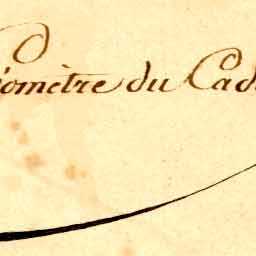 éomètre du Cad